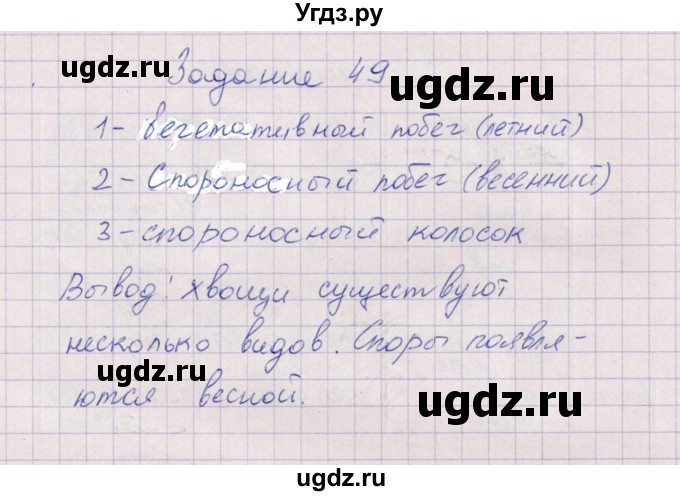 Угдз.ру
ugdz.ru
ugdz.ru
Задание 49
1- вегетативный побег (летний)
ugdz.ru
ugdz.ru
2- Спороносный побег (весенний)
3-спороносный колосок
Вывод: хвощи существуют
несколько видов. Споры появля-
ugdz.ru
ugdz.ru
ются весной.
ugdz.ru